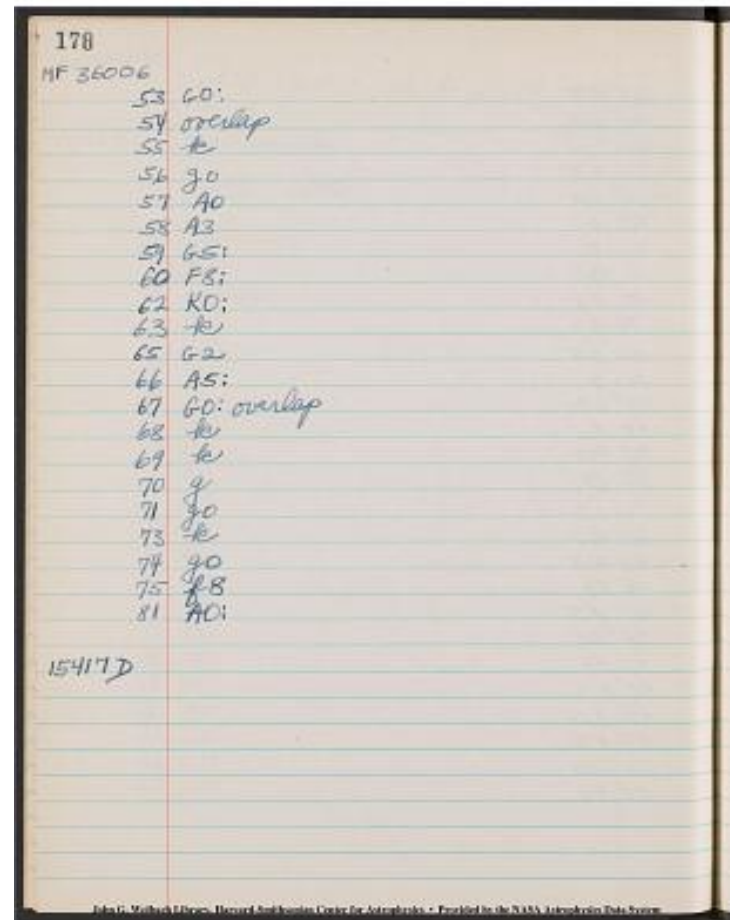 178
MF 36006
53 G0:
54 overlap
55 k
56 g0
57 A0
58 A3
59 G5:
60 F8:
62 K0:
63 k
65 G2
66 A5:
67 G0: overlap
68 k
69 k
70 g
71 g0
73 k
74 g0
75 f8
81 A0:
15417 D
John G. Wolbach Library, Harvard-Smithsonian Center for Astrophysics • Provided by the NASA Astrophysics Data System